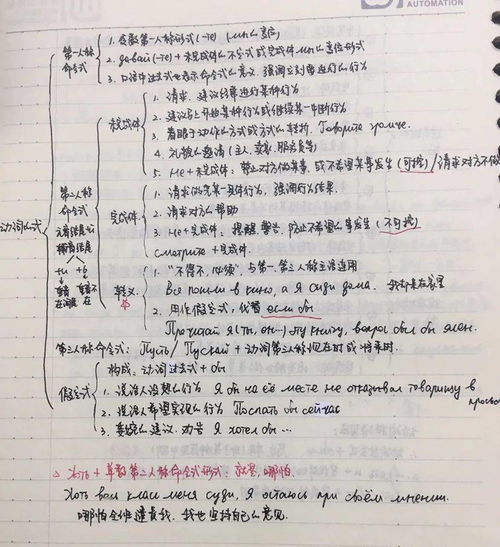 AUTOMATION
第一人称命令式
1. 复数第一人称形式(-те)
2. давай(-те) + 未完成体不定式或完成体 形式
3. 口语中过去式也表示命令式意义, 强调立刻要进行的行为
动词的式
第二人称命令式
未完成体
1. 请求、建议经常进行某种行为
2. 建议马上开始某种行为或继续某一中断行为
3. 着眼于动作的方式或方式的转折. Говорите громче.
4. 礼貌的邀请(主人、卖家、服务员等)
5. Не + 未完成体: 禁止对方做某事, 或不希望某事发生(可控)/请求对方不做
完成体
1. 请求做完某一具体行为, 强调行为结果.
2. 请求对方的帮助
3. Не + 完成体: 提醒、警告, 防止不希望的事发生(不可控)
смотрите + 完成体.
转义
1. “不得不, 必须”, 与第一、第三人称主语连用
Все пошли в кино, а я сиди дома.
2. 用作假定式, 代替 если бы
Прочитай я (ты, он...) эту книгу, вопрос был бы ясен.
第三人称命令式: Пусть / Пускай + 动词第三人称现在时或将来时.
假定式
构成: 动词过去式 + бы
1. 说话人设想的行为 Я бы на её месте не отказывал товарищу в просьбе
2. 说话人希望实现的行为 Поспать бы сейчас
3. 委婉的建议、劝告 Я хотел бы ...
△ Хоть + 单数第二人称命令式形式: 就是, 哪怕.
Хоть весь класс меня суди, я останусь при своём мнении.
哪怕全班谴责我, 我也坚持自己的意见.